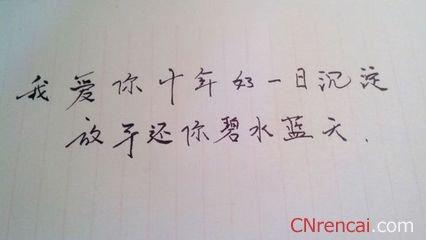 我爱你十年如一日沉淀
放手还你碧水蓝天.
CNrencai.com